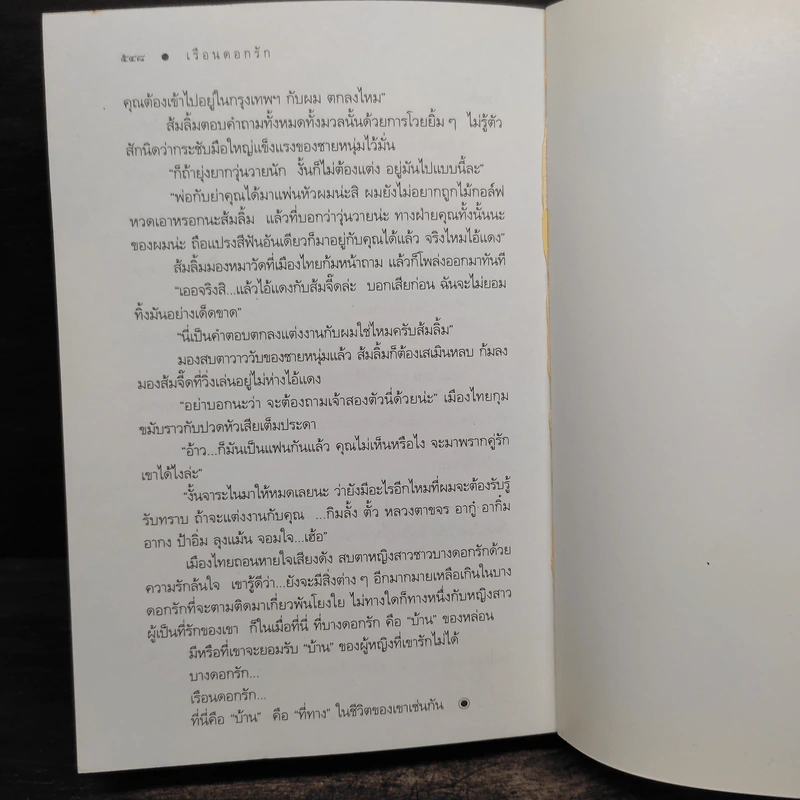 ๕๔๘ ● เรือนดอกรัก
คุณต้องเข้าไปอยู่ในกรุงเทพฯ กับผม ตกลงไหม”
ส้มลิ้มตอบคำถามทั้งหมดทั้งมวลนั้นด้วยการโวยยิ้มๆ ไม่รู้ตัว
สักนิดว่ากระชับมือใหญ่แข็งแรงของชายหนุ่มไว้มั่น
“ก็ถ้ายุ่งยากวุ่นวายนัก งั้นก็ไม่ต้องแต่ง อยู่มันไปแบบนี้ละ”
“พ่อกับย่าคุณได้มาแพ่นหัวผมน่ะสิ ผมยังไม่อยากถูกไม้กอล์ฟ
หวดเอาหรอกนะส้มลิ้ม แล้วที่บอกว่าวุ่นวายน่ะ ทางฝ่ายคุณทั้งนั้นนะ
ของผมน่ะ ถือแปรงสีฟันอันเดียวก็มาอยู่กับคุณได้แล้ว จริงไหมไอ้แดง”
ส้มลิ้มมองหมาวัดที่เมืองไทยก้มหน้าถาม แล้วก็โพล่งออกมาทันที
“เออจริงสิ...แล้วไอ้แดงกับส้มจี๊ดล่ะ บอกเสียก่อน ฉันจะไม่ยอม
ทิ้งมันอย่างเด็ดขาด”
“นี่เป็นคำตอบตกลงแต่งงานกับผมใช่ไหมครับส้มลิ้ม”
มองสบตาวาววับของชายหนุ่มแล้ว ส้มลิ้มก็ต้องเสเมินหลบ ก้มลง
มองส้มจี๊ดที่วิ่งเล่นอยู่ไม่ห่างไอ้แดง
“อย่าบอกนะว่า จะต้องถามเจ้าสองตัวนี่ด้วยน่ะ” เมืองไทยกุม
ขมับราวกับปวดหัวเสียเต็มประดา
“อ้าว...ก็มันเป็นแฟนกันแล้ว คุณไม่เห็นหรือไง จะมาพรากคู่รัก
เขาได้ไงล่ะ”
“งั้นจาระไนมาให้หมดเลยนะ ว่ายังมีอะไรอีกไหมที่ผมจะต้องรับรู้
รับทราบ ถ้าจะแต่งงานกับคุณ ...กิมลั้ง ตั้ว หลวงตาขจร อากู๋ อากิ๋ม
อากง ป้าอิ่ม ลุงแม้น จอมใจ...เฮ้อ”
เมืองไทยถอนหายใจเสียงดัง สบตาหญิงสาวชาวบางดอกรักด้วย
ความรักล้นใจ เขารู้ดีว่า...ยังจะมีสิ่งต่างๆ อีกมากมายเหลือเกินในบาง
ดอกรักที่จะตามติดมาเกี่ยวพันโยงใย ไม่ทางใดก็ทางหนึ่งกับหญิงสาว
ผู้เป็นที่รักของเขา ก็ในเมื่อที่นี่ ที่บางดอกรัก คือ “บ้าน” ของหล่อน
มีหรือที่เขาจะยอมรับ “บ้าน” ของผู้หญิงที่เขารักไม่ได้
บางดอกรัก...
เรือนดอกรัก...
ที่นี่คือ “บ้าน” คือ “ที่ทาง” ในชีวิตของเขาเช่นกัน